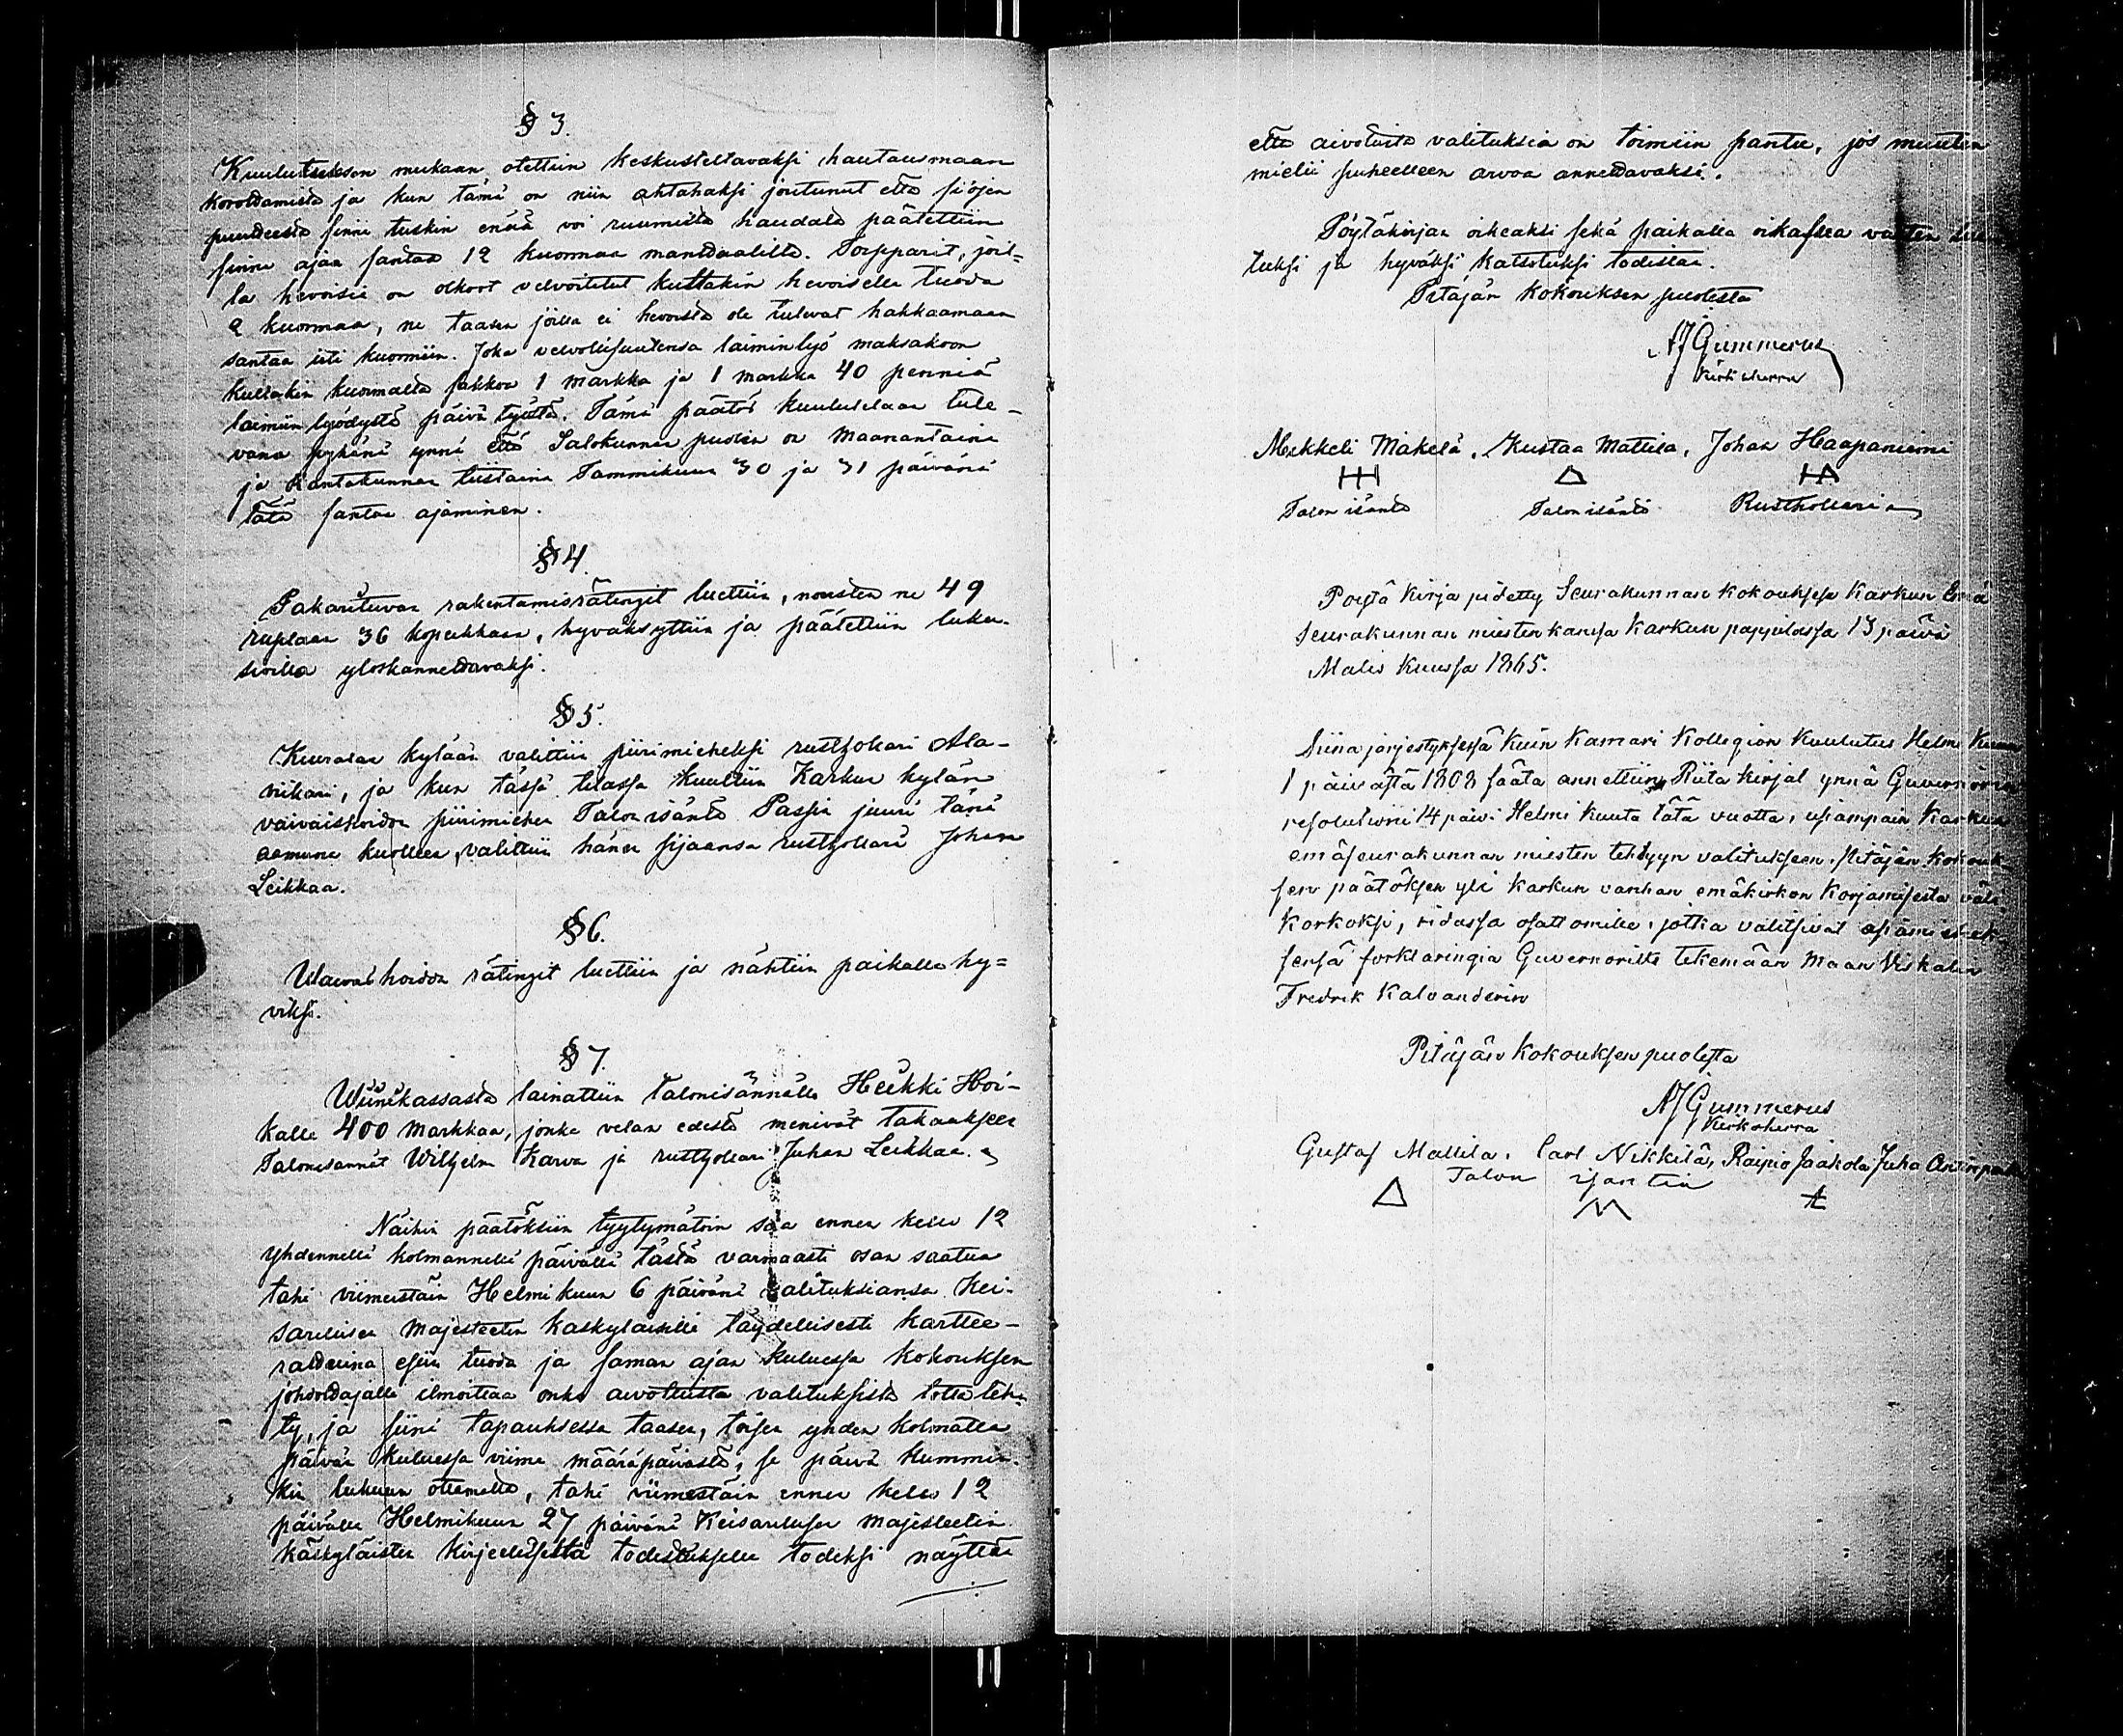 § 3.
Kuulutuksen mukaan otettiin keskusteltavaksi hautausmaan
koroldamista ja kun tämä on niin ahtahaksi joutunut että sijojen
puutteesta sinne tuskin enää voi ruumista haudata päätettiin
sinne ajaa santaa 12 kuormaa manttaalilta. Torpparit, joil-
la hevoisia on olkoot velvoitetut kultakin hevoiselta tuoda
2 kuormaa, ne taasen joilla ei hevoista ole tulevat hakkaamaan
santaa kuormiin. Joka velvollisuutensa laiminlyö maksakoon
kultakin kuormalta sakkoa 1 markka ja 1 markka 40 penniä
laimiin lyödystä päivä työstä. Tämä päätös kuulutetaan tule-
vana pyhänä ynnä että Salokunnan puolen on Maanantaina
ja Kantakunnan tiistaina Tammikuun 30 ja 31 päivänä
tätä santaa ajaminen.
§ 4.
Pakarituvan rakentamisrätingit luettiin, nousten ne 49
ruplaan 36 kopeikkaan, hyväksyttiin ja päätettiin luku-
sioilla ylöskannettavaksi.
§ 5.
Kuuralan kylään valittiin piirimieheksi rusthollari Ala-
viikari, ja kun tässä tilassa kuultiin Karkun kylän
vaivaishoidon piirimiehen Talon isäntä Passin juuri tänä
aamuna kuolleen, valittiin hänen sijaansa rusthollari Johan
Leikkaa.
§ 6.
Waivaishoidon rätingit luettiin ja nähtiin paikalla hy=
viksi.
§ 7.
Wiinikassasta lainattiin talonisännälle Heikki Hoi-
kalle 400 Markkaa, jonka velan edestä menivät takaukseen
Talonisännät Wilhelm Karva ja rusthollari Juhan Leikkaa.
Näihin päätöksiin tyytymätöin saa ennen kello 12
yhdennellä kolmannella päivällä tästä varmaasti osan saatua
tahi viimeistäin Helmikuun 6 päivänä valituksiansa Kei-
sarillisen Majesteetin käskyläisille täydellisesti kartlee-
rattuina esiin tuoda ja saman ajan kuluessa kokouksen
johdattajalle ilmoittaa onko aivotusta valituksista totta teh-
ty, ja siinä tapauksessa taasen, toisen yhden kolmatta
päivän kuluessa viime määräpäivästä, se päivä kummin-
kin lukuun ottamatta, tahi viimestäin ennen kello 12
päivällä Helmikuun 27 päivänä Keisarillisen Majesteetin
käskyläisten kirjeellisellä todistuksella todeksi näyttää
että aivotuita valituksia on toimiin pantu, jos muuten
mielii puheelleen arvoa annettavaksi.
Pöytäkirjan oikeaksi sekä paikalla oikastaa vasten
tuksi ja hyväksi katsotuksi todistaa.
Pitäjän kokouksen puolesta
AJ Gummerus
Kirkkoherra
Mikkeli Mäkelä, Kustaa Mattila, Johan Haapaniemi
Talon isäntä Talon isäntä Rusthollari
Pöytä Kirja pidetty Seurakunnan Kokouksessa Karkun Emä
Seurakunnan miesten kanssa Karkun pappilassa 13 päivä
Malis Kuussa 1865.
Siina järjestyksessä kuin Kamari Kollegion Kuulutus Helmi Kuun
1 päivästä 1808 säätä annettiin Riita kirjat ynnä Guvernörin
resolutioni 14 päiv: Helmi Kuuta tätä vuotta, usiampain Karkun
emäseurakunnan miesten tehtyyn valitukseen Pitäjän Kokouk-
sen päätöksen yli Karkun vanhan emäkirkon Korjamisesta väli
korkoksi, ridassa osattomille, jotka valitsivat asiamiehek-
sensä forklaringia Guvernorille tekemään Maan Viskalin
Fredrik Kalvanderin
Pitäjän Kokouksen puolesta
AJ Gummerus
Kirkoherra
Gustaf Mallila, Carl Nikkilä, Raipio Jaakola Juha
Talon isäntiä